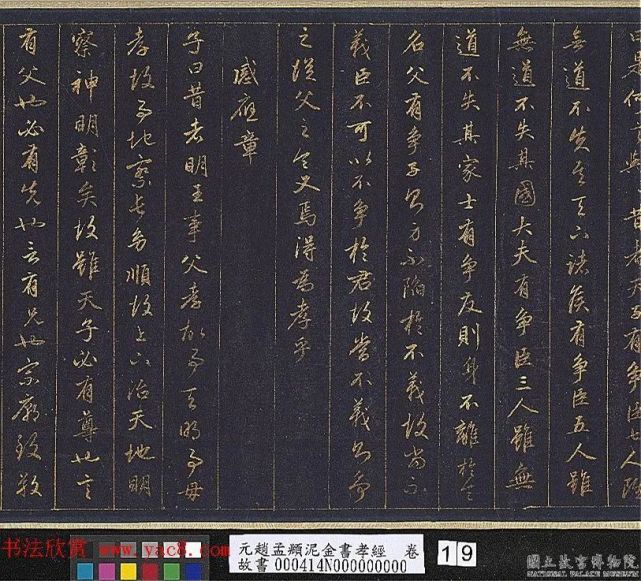 昔者天子有爭臣七人雖
無道不失其天下諸侯有爭臣五人雖
無道不失其國大夫有爭臣三人雖無
道不失其家士有爭友則身不離於令
名父有爭子則身不陷於不義故當不
義臣不可以不爭於君故當不義則爭
之從父之令又焉得為孝乎
感應章
子曰昔者明王事父孝故事天明事母
孝故事地察長幼順故上下治天地明
察神明彰矣故雖天子必有尊也言
有父也必有先也言有兄也宗廟致敬
书法欣赏
www.yac8.com
元趙孟頫泥金書孝經 卷
故書 000414N000000000
19
國立故宮博物院
NATIONAL PALACE MUSEUM